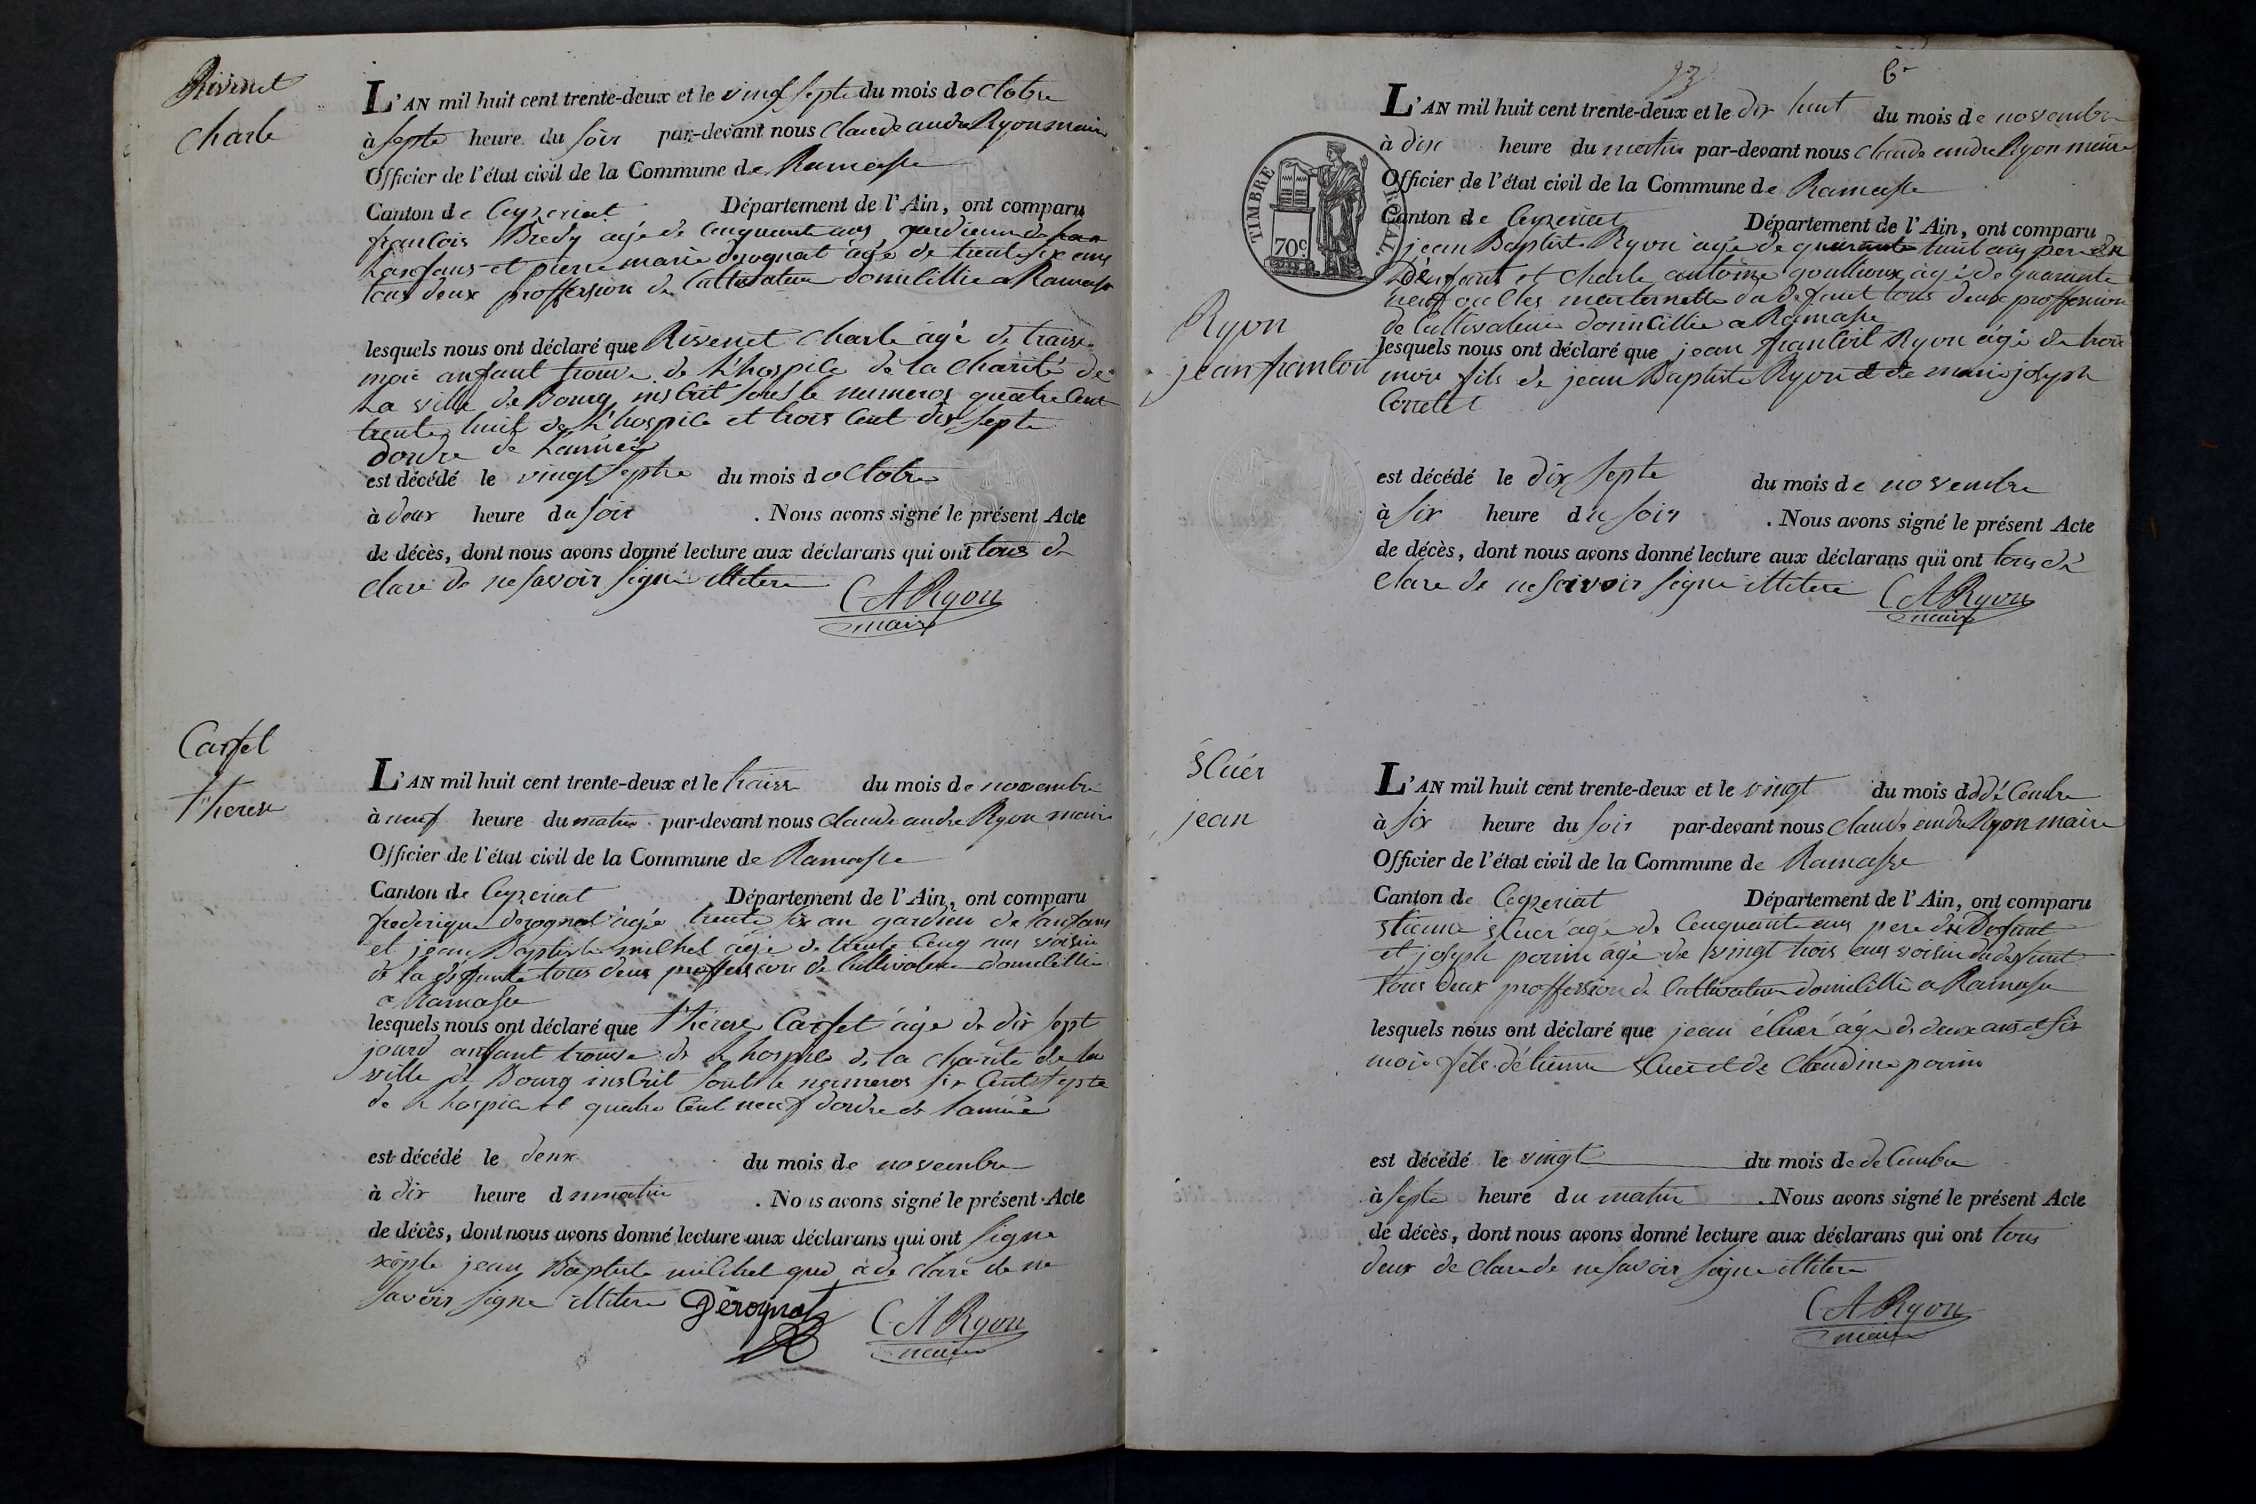 Rivenet
charle
L'AN mil huit cent trente-deux et le vingt septe du mois d octobre
à septe heure du soir par-devant nous claude andre Ryon maire
Officier de l'état civil de la Commune de Ramasse
Canton de Ceyzeriat Département de l'Ain, ont comparu
francois Bredy agé de cinquante ans gardien de
Lanfans et pierre marie derognat agé de trente six ans
tous deux proffession de Cultivateur domicillie a Ramasse
lesquels nous ont déclaré que Rivenet charle agé de traize
moie anfant trouve de L'hospice de la charité de
La ville de Bourg inscrit sous le numeros quatre cent
trente huit de L'hospice et trois cent dix septe
dordre de Lannée
est décédé le vingt septe du mois d octobre
à deux heure du soir . Nous avons signé le présent Acte
de décès, dont nous avons donné lecture aux déclarans qui ont tous de
claré de ne savoir signe illitere
C A Ryon
maire
Carfel
therese
L'AN mil huit cent trente-deux et le traize du mois de novembre
à neuf heure du matin par-devant nous claude andre Ryon maire
Officier de l'état civil de la Commune de Ramasse
Canton de Ceyzeriat Département de l'Ain, ont comparu
frederique derognat agé trente six an gardien de lanfans
et jean Baptiste michel agé de trente cenq ans voisin
de la défunte tous deux proffession de Cultivateur domicillie
a Ramasse
lesquels nous ont déclaré que therese Carfet agé de dix sept
jourd anfant trouve de L hospice de la charité de la
ville de Bourg inscrit soub le numeros six cent septe
de L hospice et quatre cent neuf dordre de lannée
est décédé le deux du mois de novembre
à dix heure d u matin . Nous avons signé le présent Acte
de décès, dont nous avons donné lecture aux déclarans qui ont signe
xépte jean Baptiste michel que a de claré de ne
savoir signe illitere Dérognat C A Ryon
maire
23 6e
L'AN mil huit cent trente-deux et le dix huit du mois de novembre
à dix heure du matin par-devant nous claude andre Ryon maire
Officier de l'état civil de la Commune de Ramasse
TIMBRE ROYAL.
70c
Canton de Ceyzeriat Département de l'Ain, ont comparu
jean Baptiste Ryon agé de quarante huit ans pere du
Défunt et charle antoine goullioux agé de quarante
neuf oncles maternelle du defunt tous deux proffession
de Cultivateur domicillie a Ramasse
Ryon
jean francoit
lesquels nous ont déclaré que jean francoit Ryon agé de trois
moie fils de jean Baptiste Ryon et de marie joseph
Corretet
est décédé le dix septe du mois de novembre
à six heure du soir . Nous avons signé le présent Acte
de décès, dont nous avons donné lecture aux déclarans qui ont tous dé
clare de ne savoir signe illitere
C A Ryon
maire
Scuér
jean
L'AN mil huit cent trente-deux et le vingt du mois d dé cembre
à six heure du soir par-devant nous claude andre Ryon maire
Officier de l'état civil de la Commune de Ramasse
Canton de Ceyzeriat Département de l'Ain, ont comparu
stienne scuer agé de cenquante ans pere du Defunt
et joseph perrin agé de vingt trois ans voisin du defunt
tous deux proffession de Cultivateur domicillie a Ramasse
lesquels nous ont déclaré que jean écuer agé de deux ans et six
moie fils détienne Scuer et de claudine perrin
est décédé le vingt du mois de de cembre
à septe heure du matin . Nous avons signé le présent Acte
de décès, dont nous avons donné lecture aux déclarans qui ont tous
deux de clare de ne savoir signe illitere
C A Ryon
maire